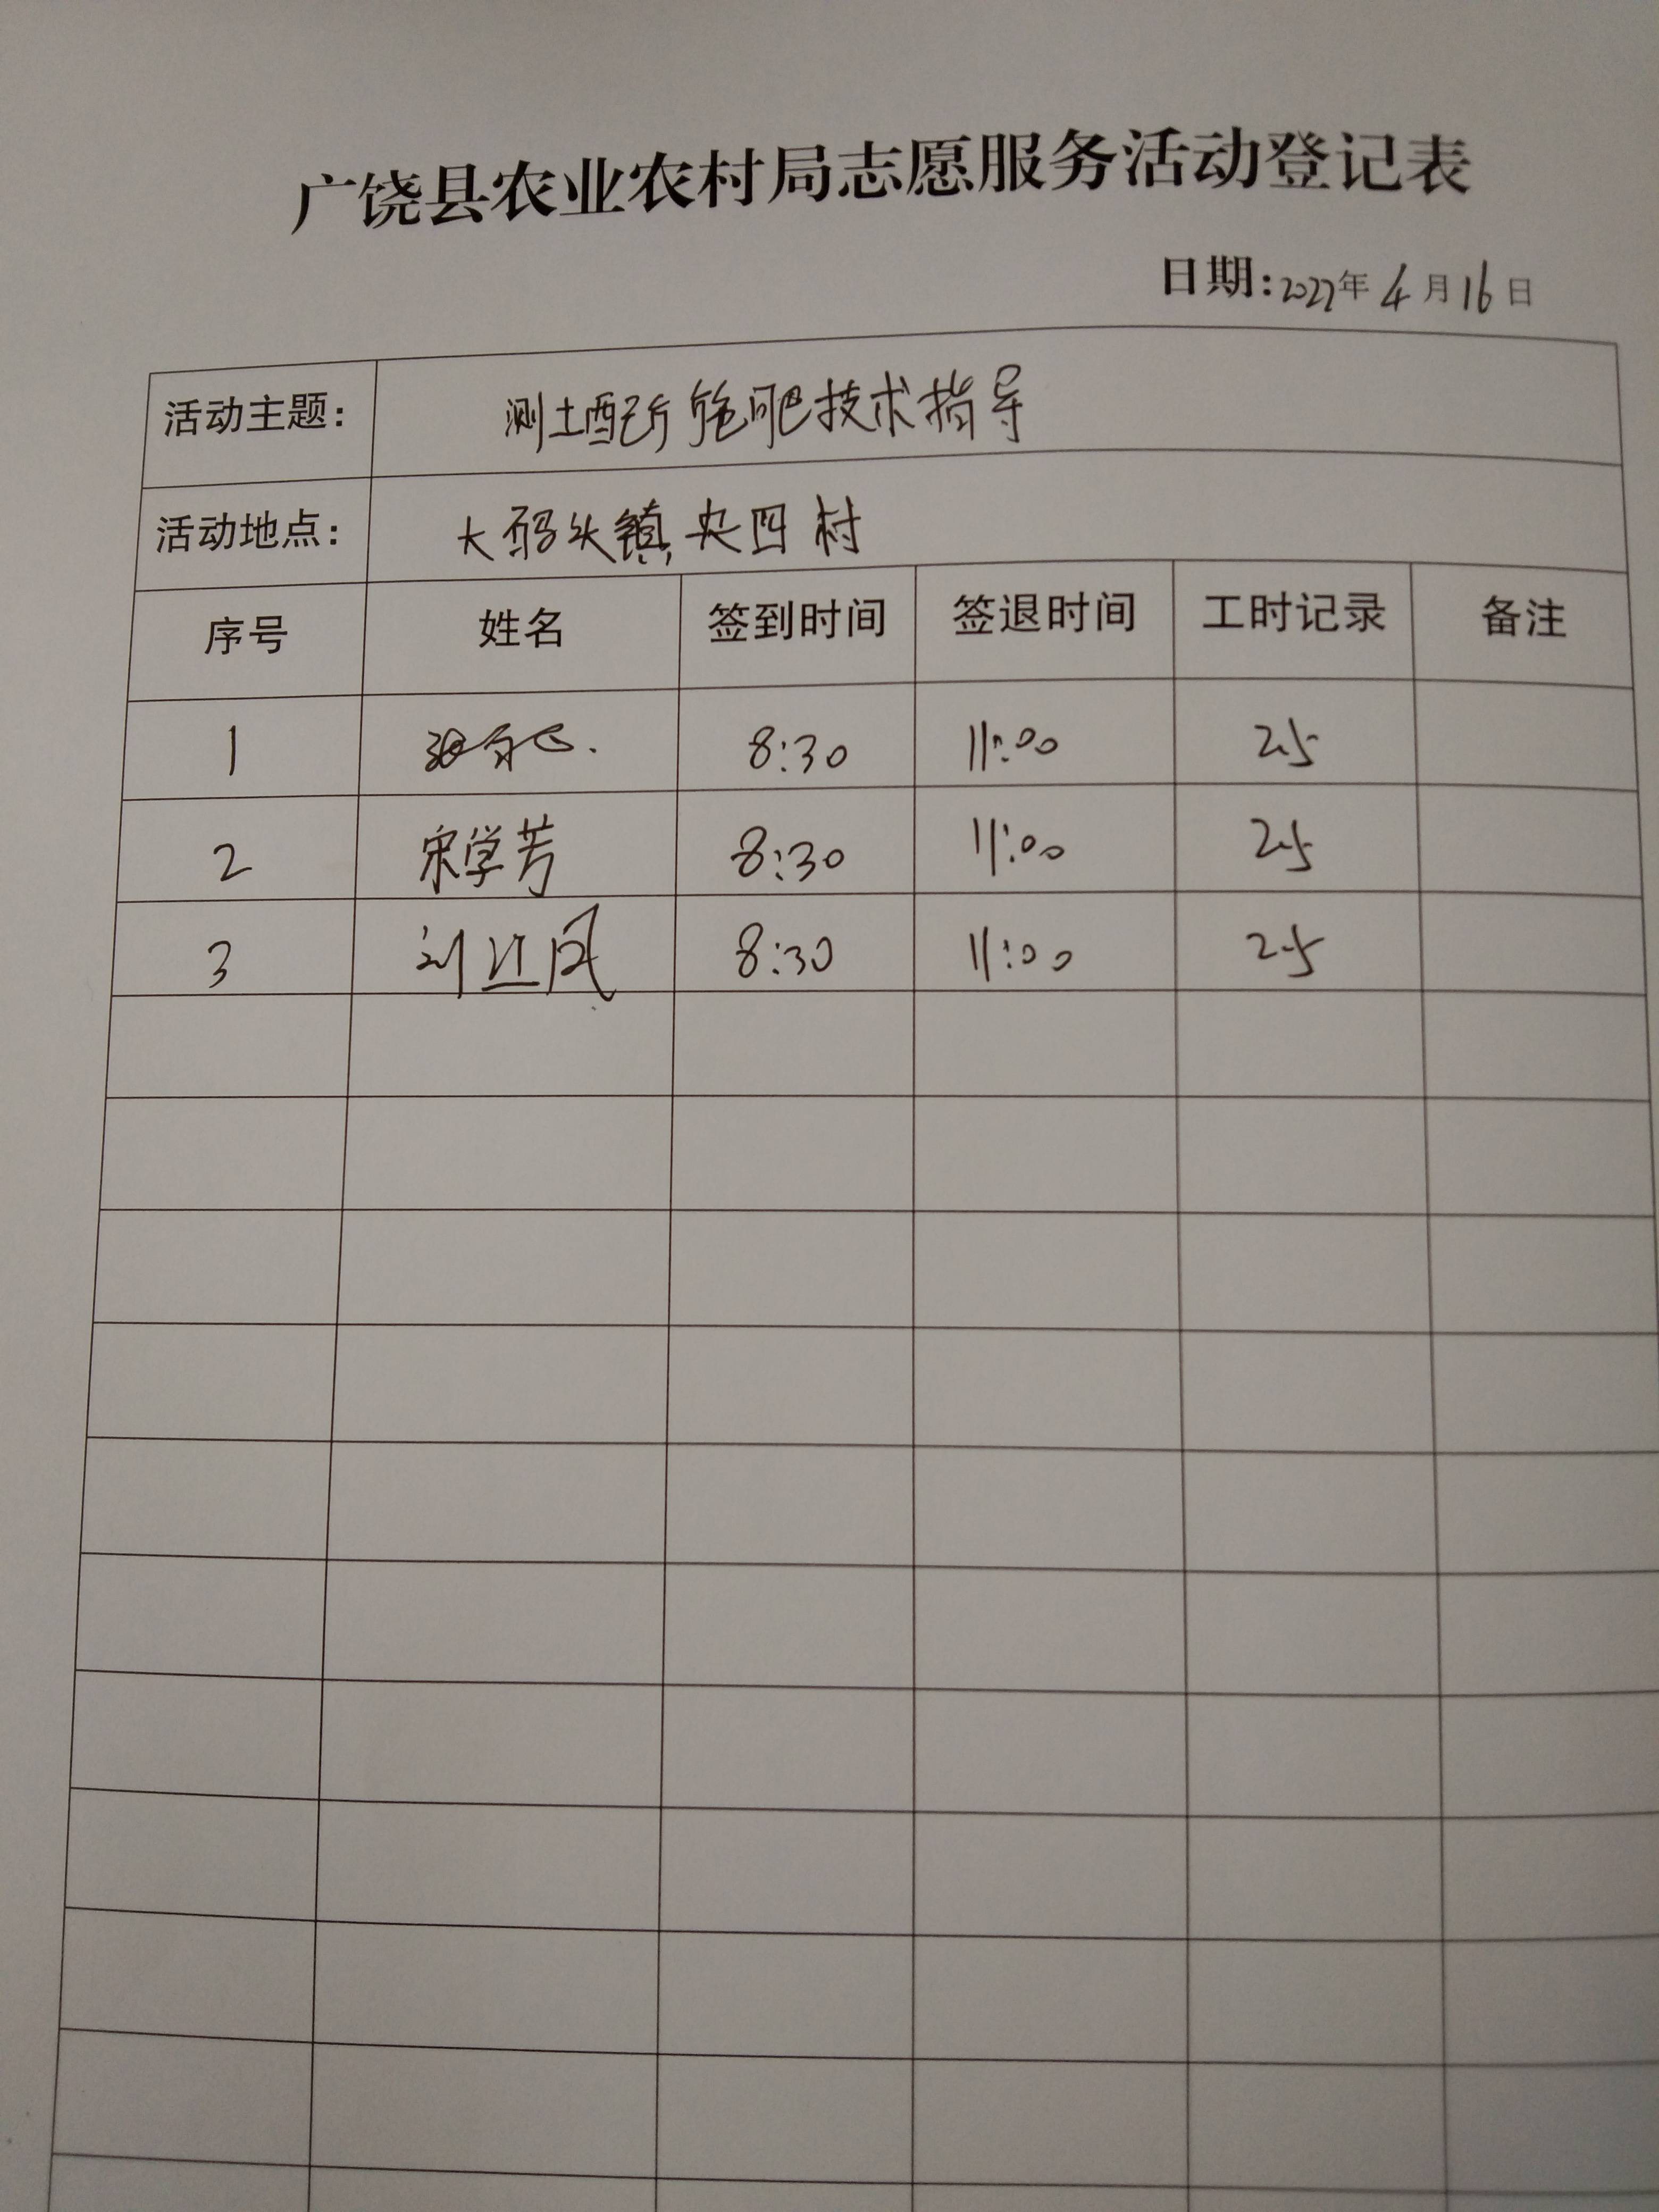 广饶县农业农村局志愿服务活动登记表
日期:2022年4月16日
活动主题: 测土配方施肥技术指导
活动地点: 大码头镇,央四村
序号 姓名 签到时间 签退时间 工时记录 备注
1 8:30 11:00 2.5
2 宋学芳 8:30 11:00 2.5
3 刘江风 8:30 11:00 2.5